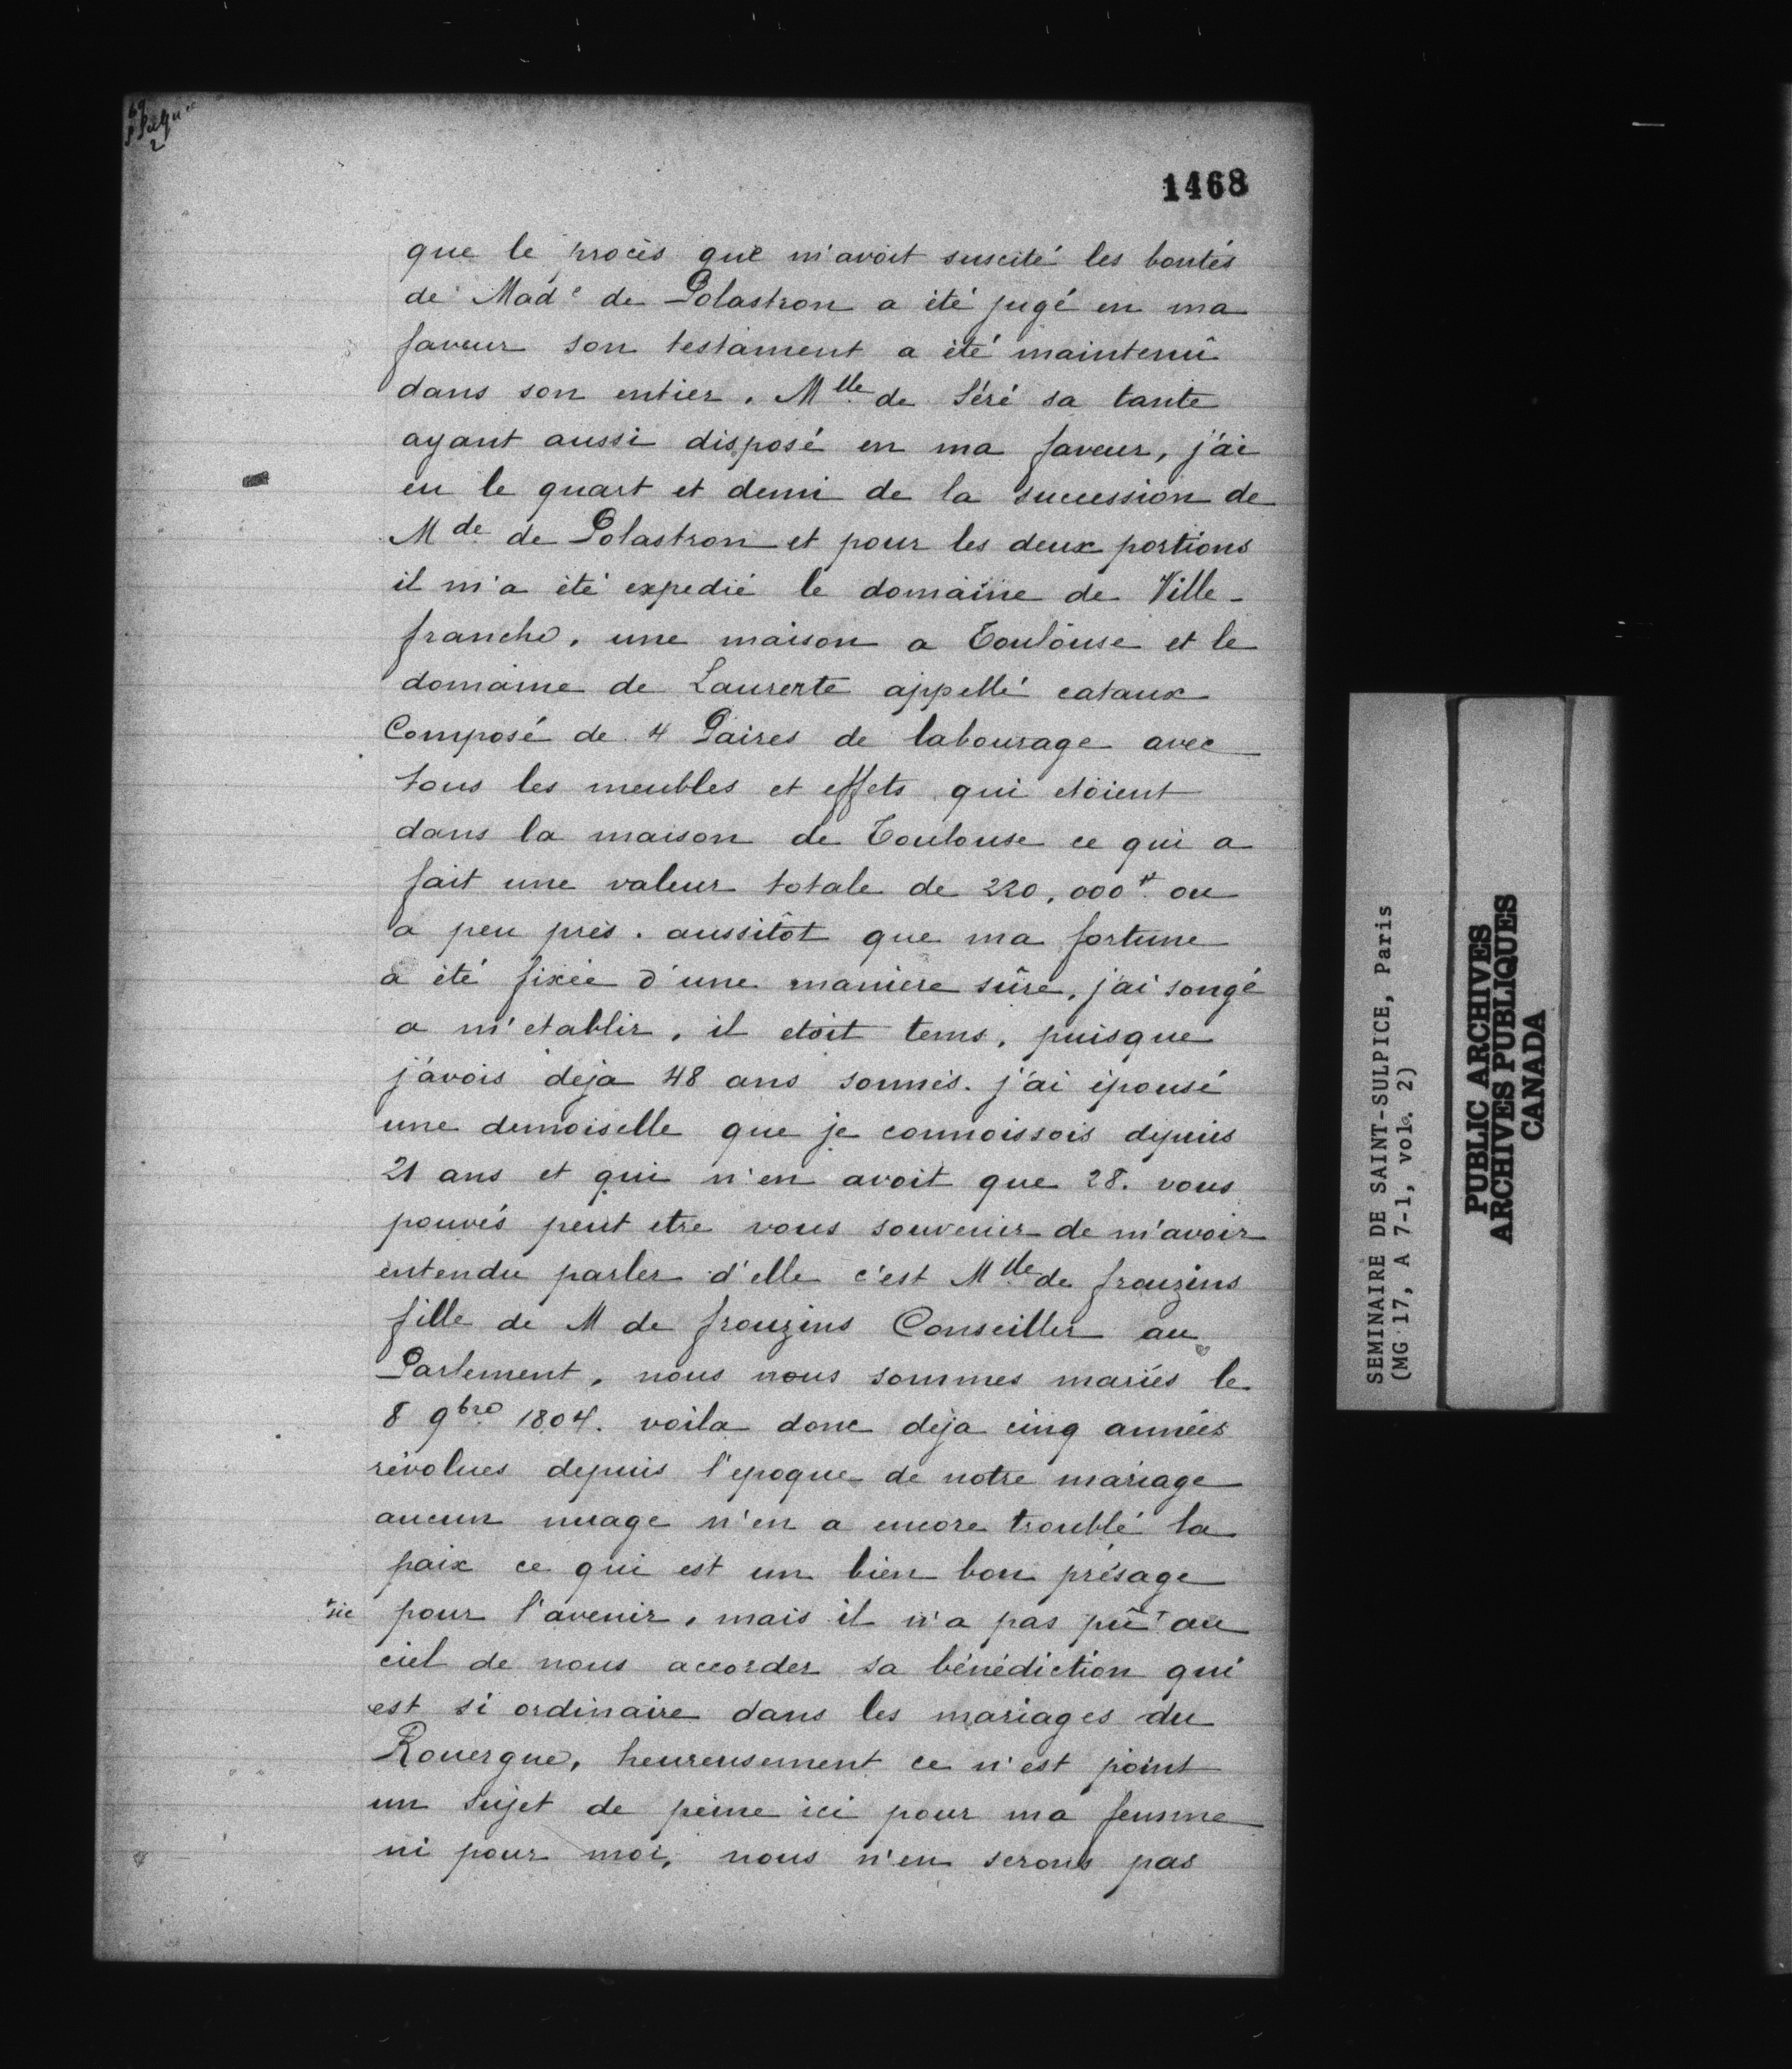 69
2
1468
que le procès que m'avoit suscité les bontés
de Mad^e de Polastron a été jugé en ma
faveur son testament a été maintenû
dans son entier. M^lle de Séré sa tante
ayant aussi disposé en ma faveur, j'ai
eu le quart et demi de la succession de
M^de de Polastron et pour les deux portions
il m'a été expedié le domaine de Ville-
franche, une maison a Toulouse et le
domaine de Lauserte appellé cataux
Composé de 4 Paires de labourage avec
tous les meubles et effets qui etoient
dans la maison de Toulouse ce qui a
fait une valeur totale de 220,000^# ou
a peu près. aussitôt que ma fortune
a été fixée d'une manière sûre, j'ai songé
a m'etablir, il etoit tems, puisque
j'avois deja 48 ans sonnés. j'ai épousé
une demoiselle que je connoissois depuis
21 ans et qui n'en avoit que 28. vous
pouvés peut etre vous souvenir de m'avoir
entendu parler d'elle c'est M^lle de frouzins
fille de M de frouzins Conseiller au
Parlement, nous nous sommes mariés le
8 9^bre 1804. voila donc deja cinq années
révolues depuis l'epoque de notre mariage
aucun nuage n'en a encore troublé la
paix ce qui est un bien bon présage
+sic pour l'avenir, mais il n'a pas pû+ au
ciel de nous accorder sa bénédiction qui
est si ordinaire dans les mariages du
Rouergue, heureusement ce n'est point
un sujet de peine ici pour ma femme
ni pour moi, nous n'en serons pas
SEMINAIRE DE SAINT-SULPICE, Paris
(MG 17, A 7-1, vol. 2)
PUBLIC ARCHIVES
ARCHIVES PUBLIQUES
CANADA